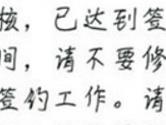 核，已达到签
间，请不要修
签约工作。请